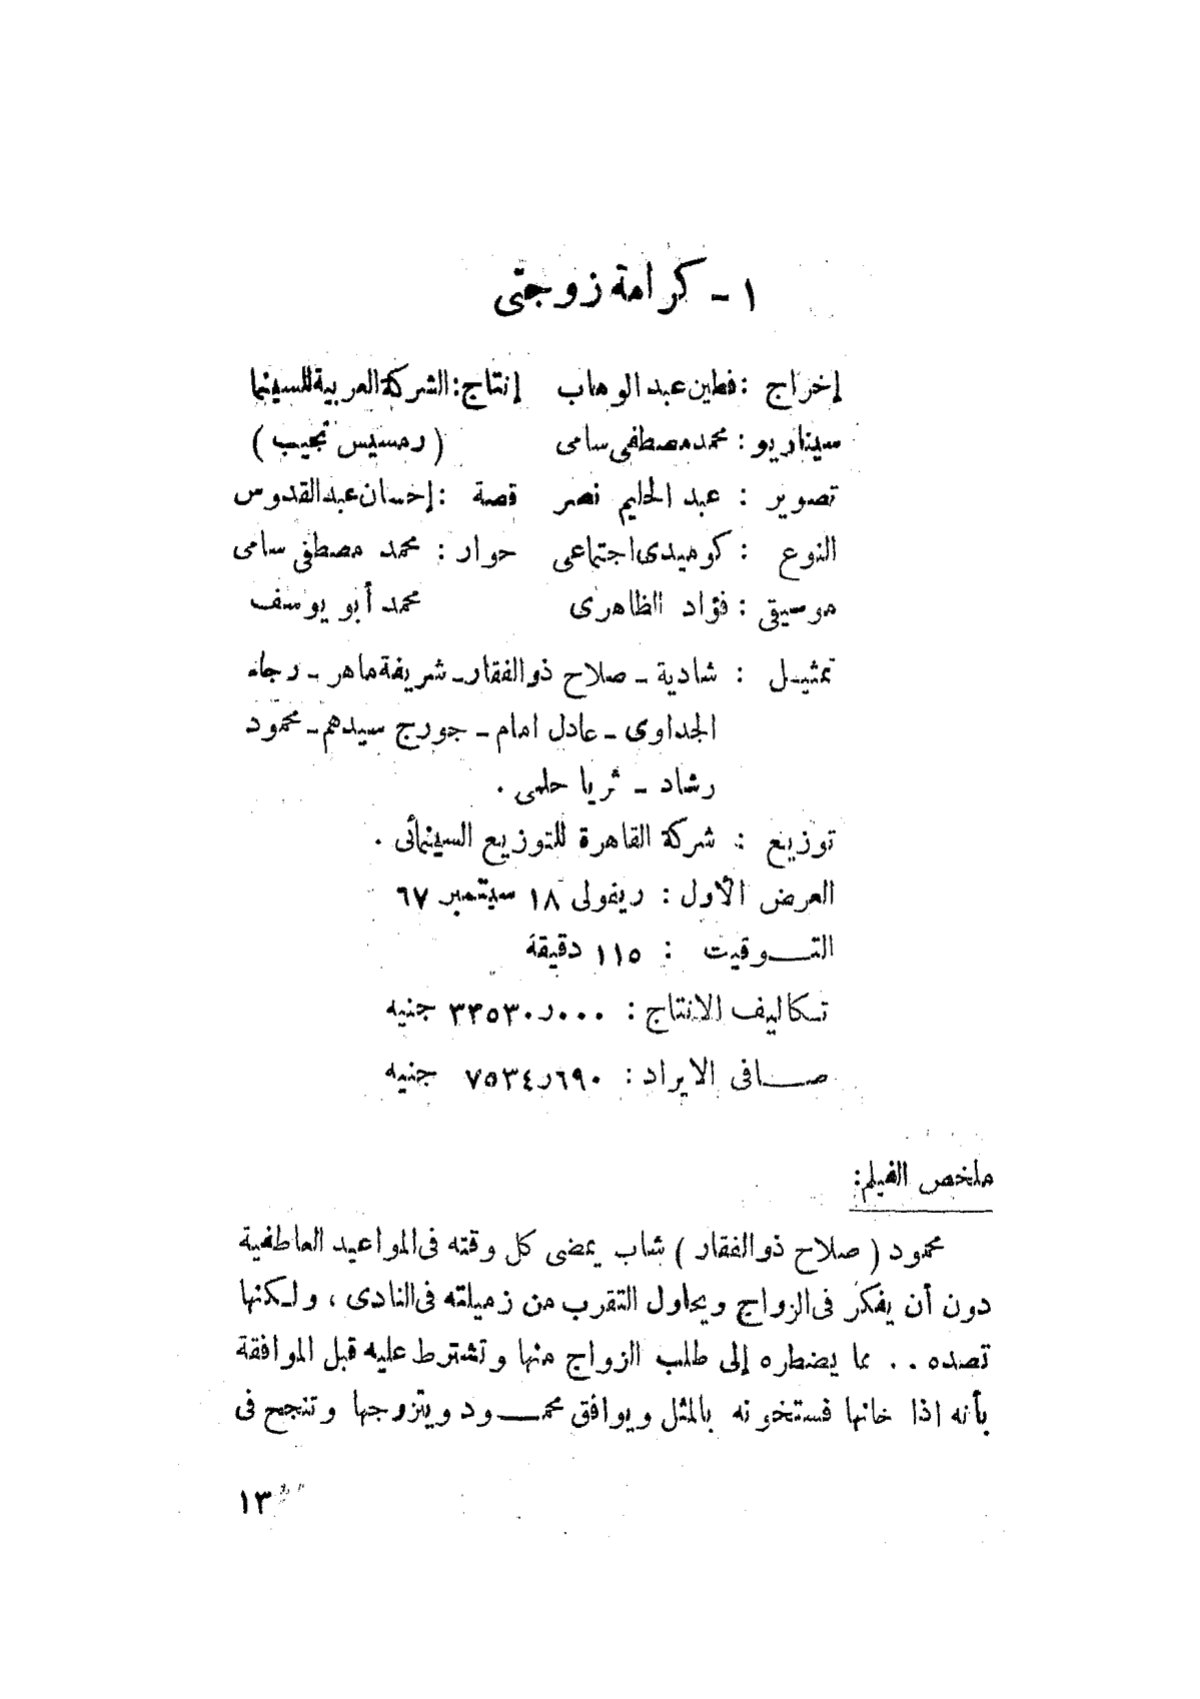 ١ - كرامة زوجتى
إخراج : فطين عبد الوهاب إنتاج : الشركة العربية للسينما
سيناريو : محمد مصطفى سامى ( رمسيس نجيب )
تصوير : عبد الحليم نصر قصة : إحسان عبد القدوس
النوع : كوميدى اجتماعى حوار : محمد مصطفى سامى
موسيقى : فؤاد الظاهرى محمد أبو يوسف
تمثيل : شادية - صلاح ذو الفقار - شريفة ماهر - رجاء
الجداوى - عادل امام - جورج سيدهم - محمود
رشاد - ثريا حلمى .
توزيع : شركة القاهرة للتوزيع السينمائى .
العرض الأول : ريفولى ١٨ سيتمبر ٦٧
التـــوقيت : ١١٥ دقيقة
تكاليف الانتاج : ٣٣٥٣٠ر٠٠٠ جنيه
صـــافى الايراد : ٧٥٣٤ر٦٩٠ جنيه
ملخص الفيلم :
محمود ( صلاح ذو الفقار ) شاب يمضى كل وقته فى المواعيد العاطفية
دون أن يفكر فى الزواج ويحاول التقرب من زميلته فى النادى ، ولكنها
تصده . . مما يضطره إلى طلب الزواج منها وتشترط عليه قبل الموافقة
بأنه اذا خانها فستخونه بالمثل ويوافق محمـــود ويتزوجها وتنجح فى
١٣